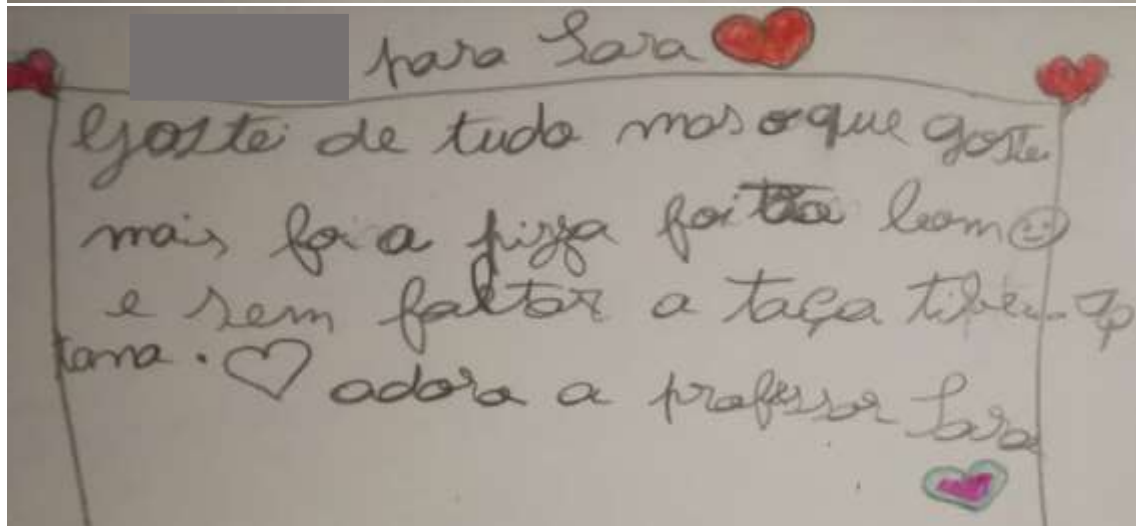 para Sara
Goste de tudo mas o que goste
mais foi a pizza foi tão bom
e sem faltar a taça tibe-
tana. adora a professor Sara